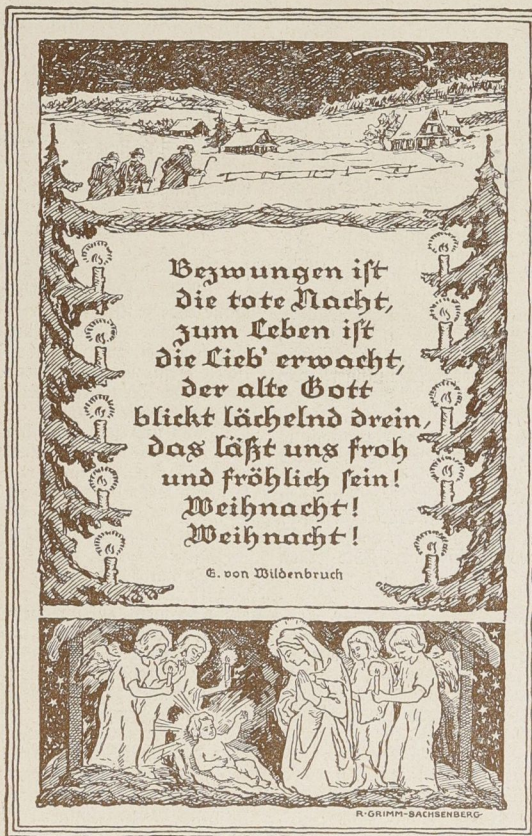 Bezwungen ist
die tote Nacht,
zum Leben ist
die Lieb' erwacht,
der alte Gott
blickt lächelnd drein,
das läßt uns froh
und fröhlich sein!
Weihnacht!
Weihnacht!
E. von Wildenbruch
R·GRIMM-SACHSENBERG·